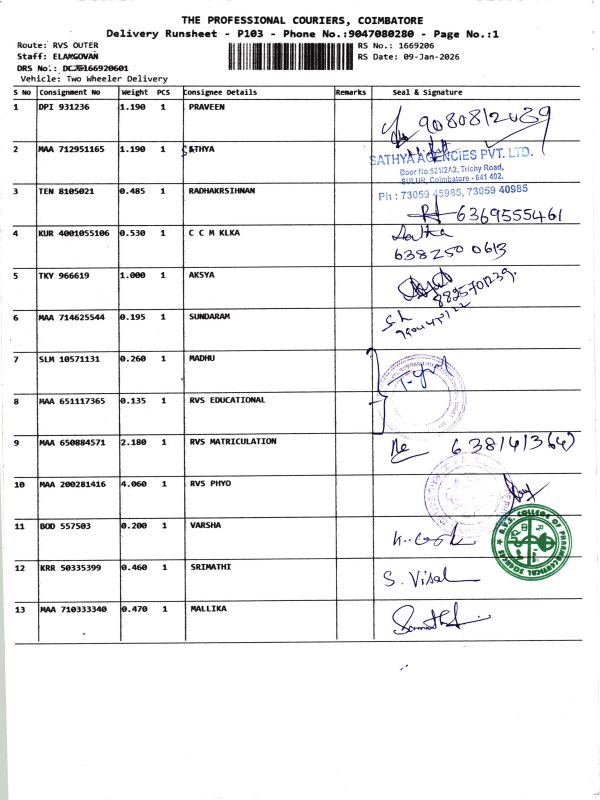 THE PROFESSIONAL COURIERS, COIMBATORE
Delivery Runsheet - P103 - Phone No.:9047080280 - Page No.:1
Route: RVS OUTER
RS No.: 1669206
Staff: ELANGOVAN
RS Date: 09-Jan-2026
DRS No.: DCJ5166920601
Vehicle: Two Wheeler Delivery
S No Consignment No Weight PCS Consignee Details Remarks Seal & Signature
1 DPI 931236 1.190 1 PRAVEEN 9080812039
2 MAA 712951165 1.190 1 SATHYA
SATHYA AGENCIES PVT. LTD.
Door No.521/2A2, Trichy Road,
SULUR, Coimbatore - 641 402.
Ph : 73059 45985, 73059 40985
3 TEN 8105021 0.485 1 RADHAKRSIHNAN 6369555461
4 KUR 4001055106 0.530 1 C C M KLKA
638250 0613
5 TKY 966619 1.000 1 AKSYA
8825701239.
6 MAA 714625544 0.195 1 SUNDARAM
7 SLM 10571131 0.260 1 MADHU
8 MAA 651117365 0.135 1 RVS EDUCATIONAL
9 MAA 650884571 2.180 1 RVS MATRICULATION
10 MAA 200281416 4.060 1 RVS PHYO
R.V.S. COLLEGE OF PHARMACEUTICAL SCIENCES
11 BOD 557503 0.200 1 VARSHA
12 KRR 50335399 0.460 1 SRIMATHI S. Visal
13 MAA 710333340 0.470 1 MALLIKA